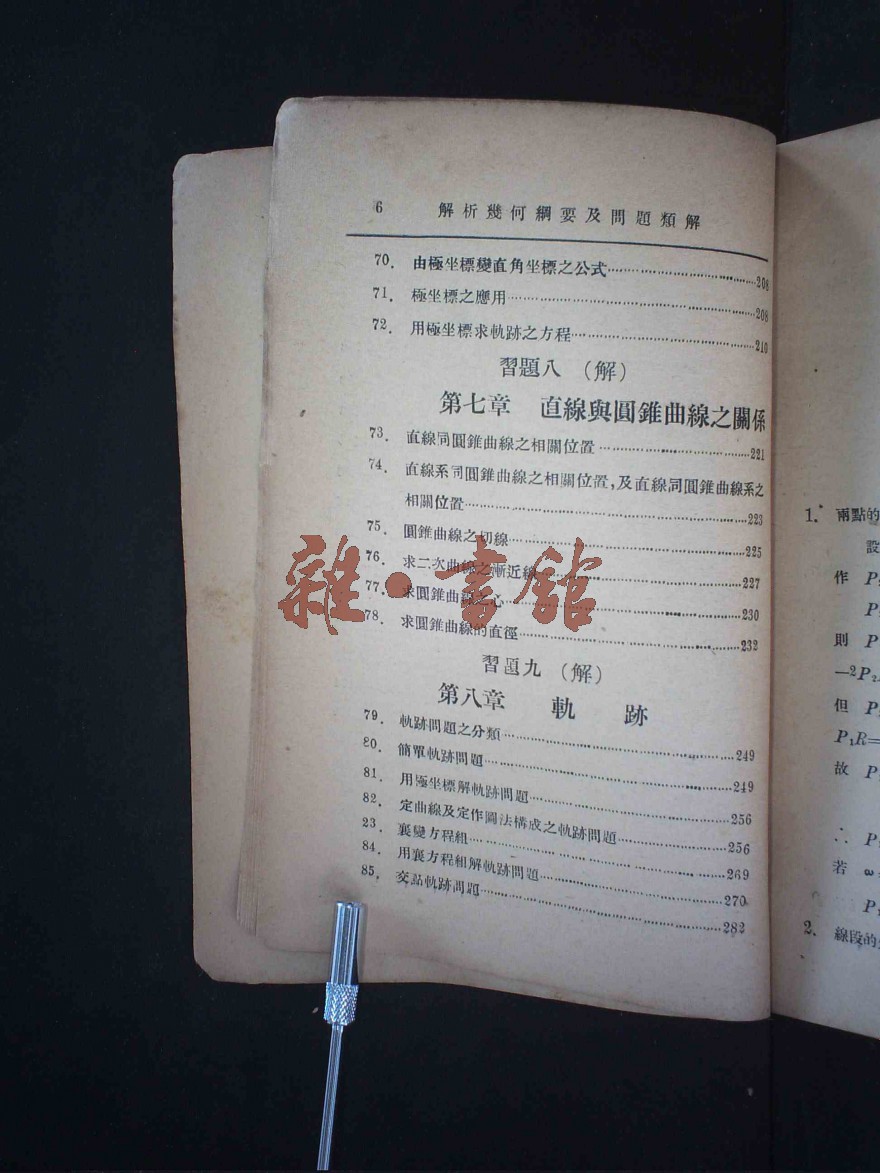 6 解析幾何綱要及問題類解
70. 由極坐標變直角坐標之公式……208
71. 極坐標之應用……208
72. 用極坐標求軌跡之方程……210
習題八 (解)
第七章 直線與圓錐曲線之關係
73. 直線同圓錐曲線之相關位置……221
74. 直線系同圓錐曲線之相關位置,及直線同圓錐曲線系之
相關位置……223
75. 圓錐曲線之切線……225
76. 求二次曲線之漸近線……227
77. 求圓錐曲線之心……230
78. 求圓錐曲線的直徑……232
習題九 (解)
第八章 軌跡
79. 軌跡問題之分類……249
80. 簡單軌跡問題……249
81. 用極坐標解軌跡問題……256
82. 定曲線及定作圖法構成之軌跡問題……256
23. 襄變方程組……269
84. 用襄方程組解軌跡問題……270
85. 交點軌跡問題……282
雜·書館
1. 兩點的
設
作 P
P
則 P
—2P₂
但 P
P₁R=
故 P
∴ P
若 ω
P
2. 線段的